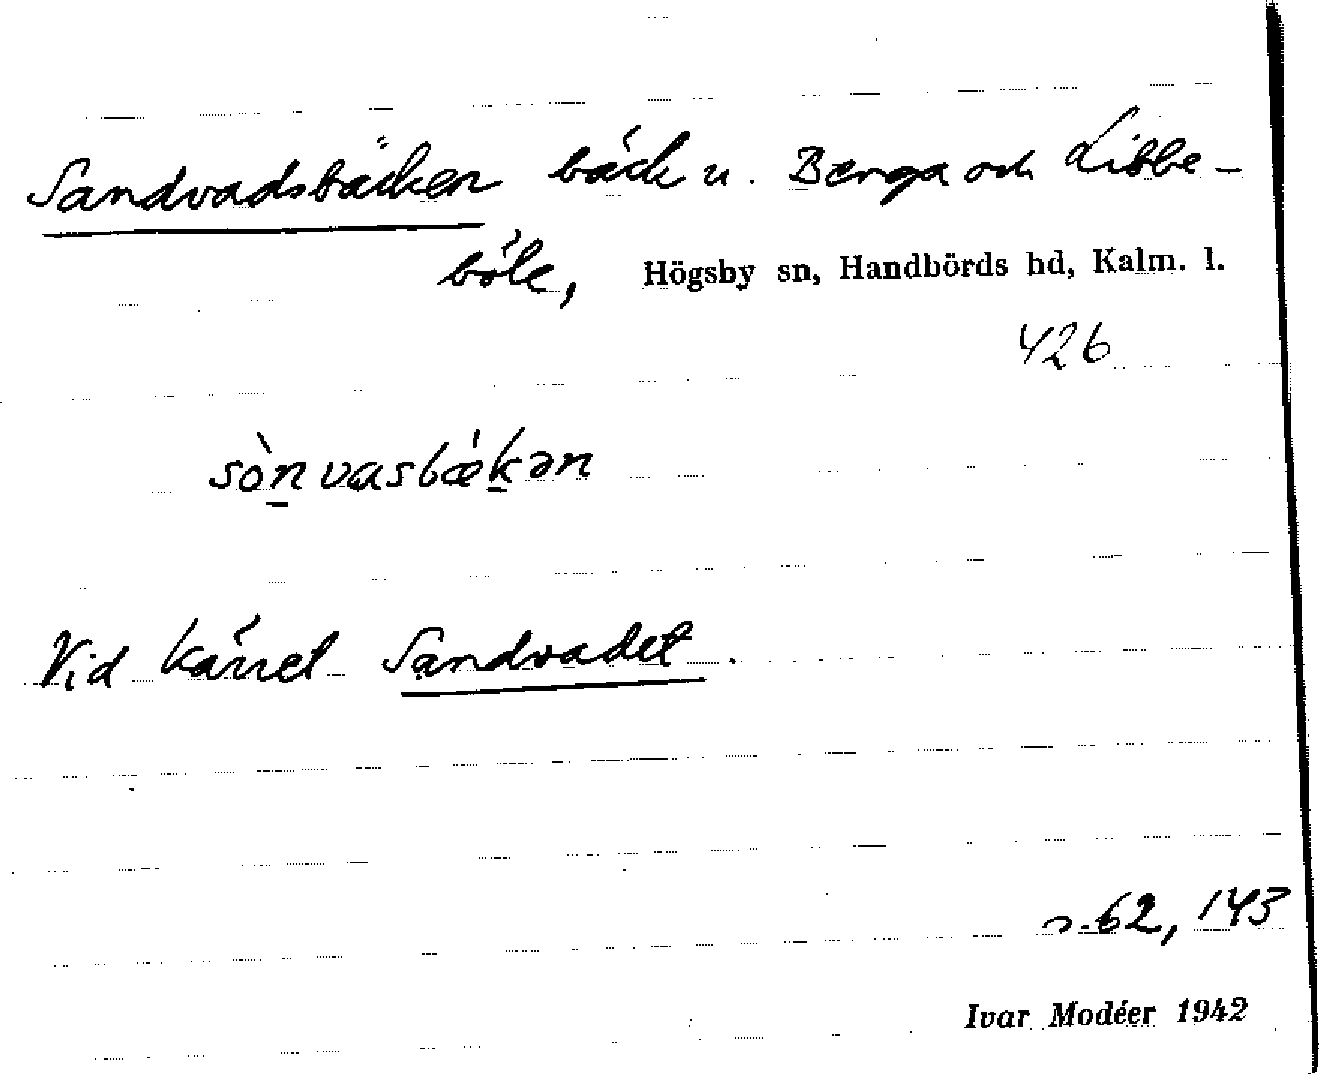 Sandvadsbäcken bäck u. Berga och Libbe-
böle, Högsby sn, Handbörds hd, Kalm. l.
426
sò̠nvasbǽk̠ən
Vid kärret Sandvadet.
s. 62, 143
Ivar Modéer 1942